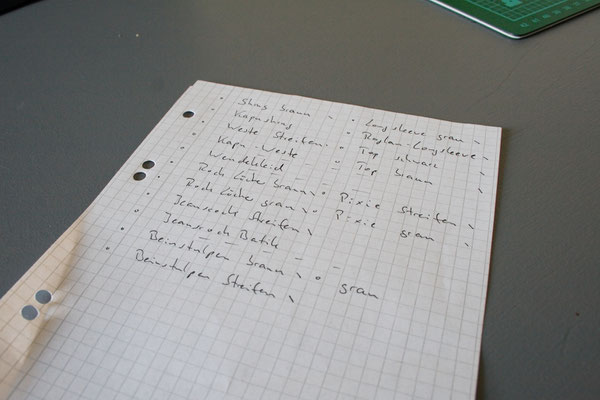 Shrug braun
Kapushrug
Weste Streifen
Kapu-Weste
Wendekleid
Rock Lücke braun
Rock Lücke grau
Jeansrock Streifen
Jeansrock Batik
Beinstulpen braun
Beinstulpen Streifen
Longsleeve grau
Raglan-Longsleeve
Top schwarz
Top braun
Pixie Streifen
Pixie grau
grau